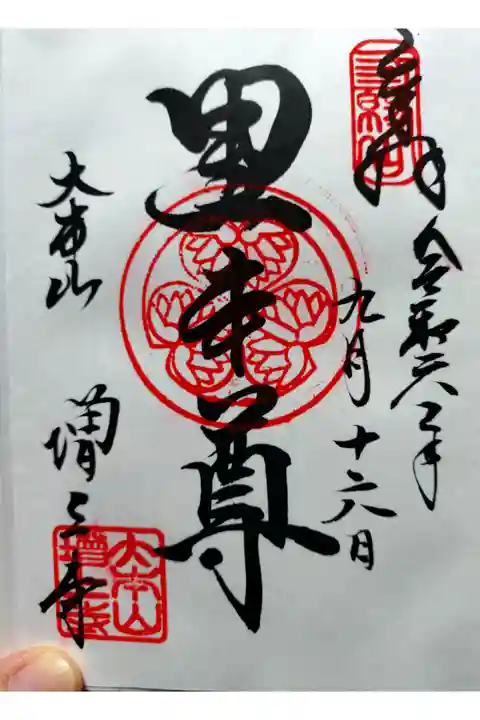 奉拝
令和六年
九月十六日
黒本尊
大本山
増上寺
大本山
増上寺